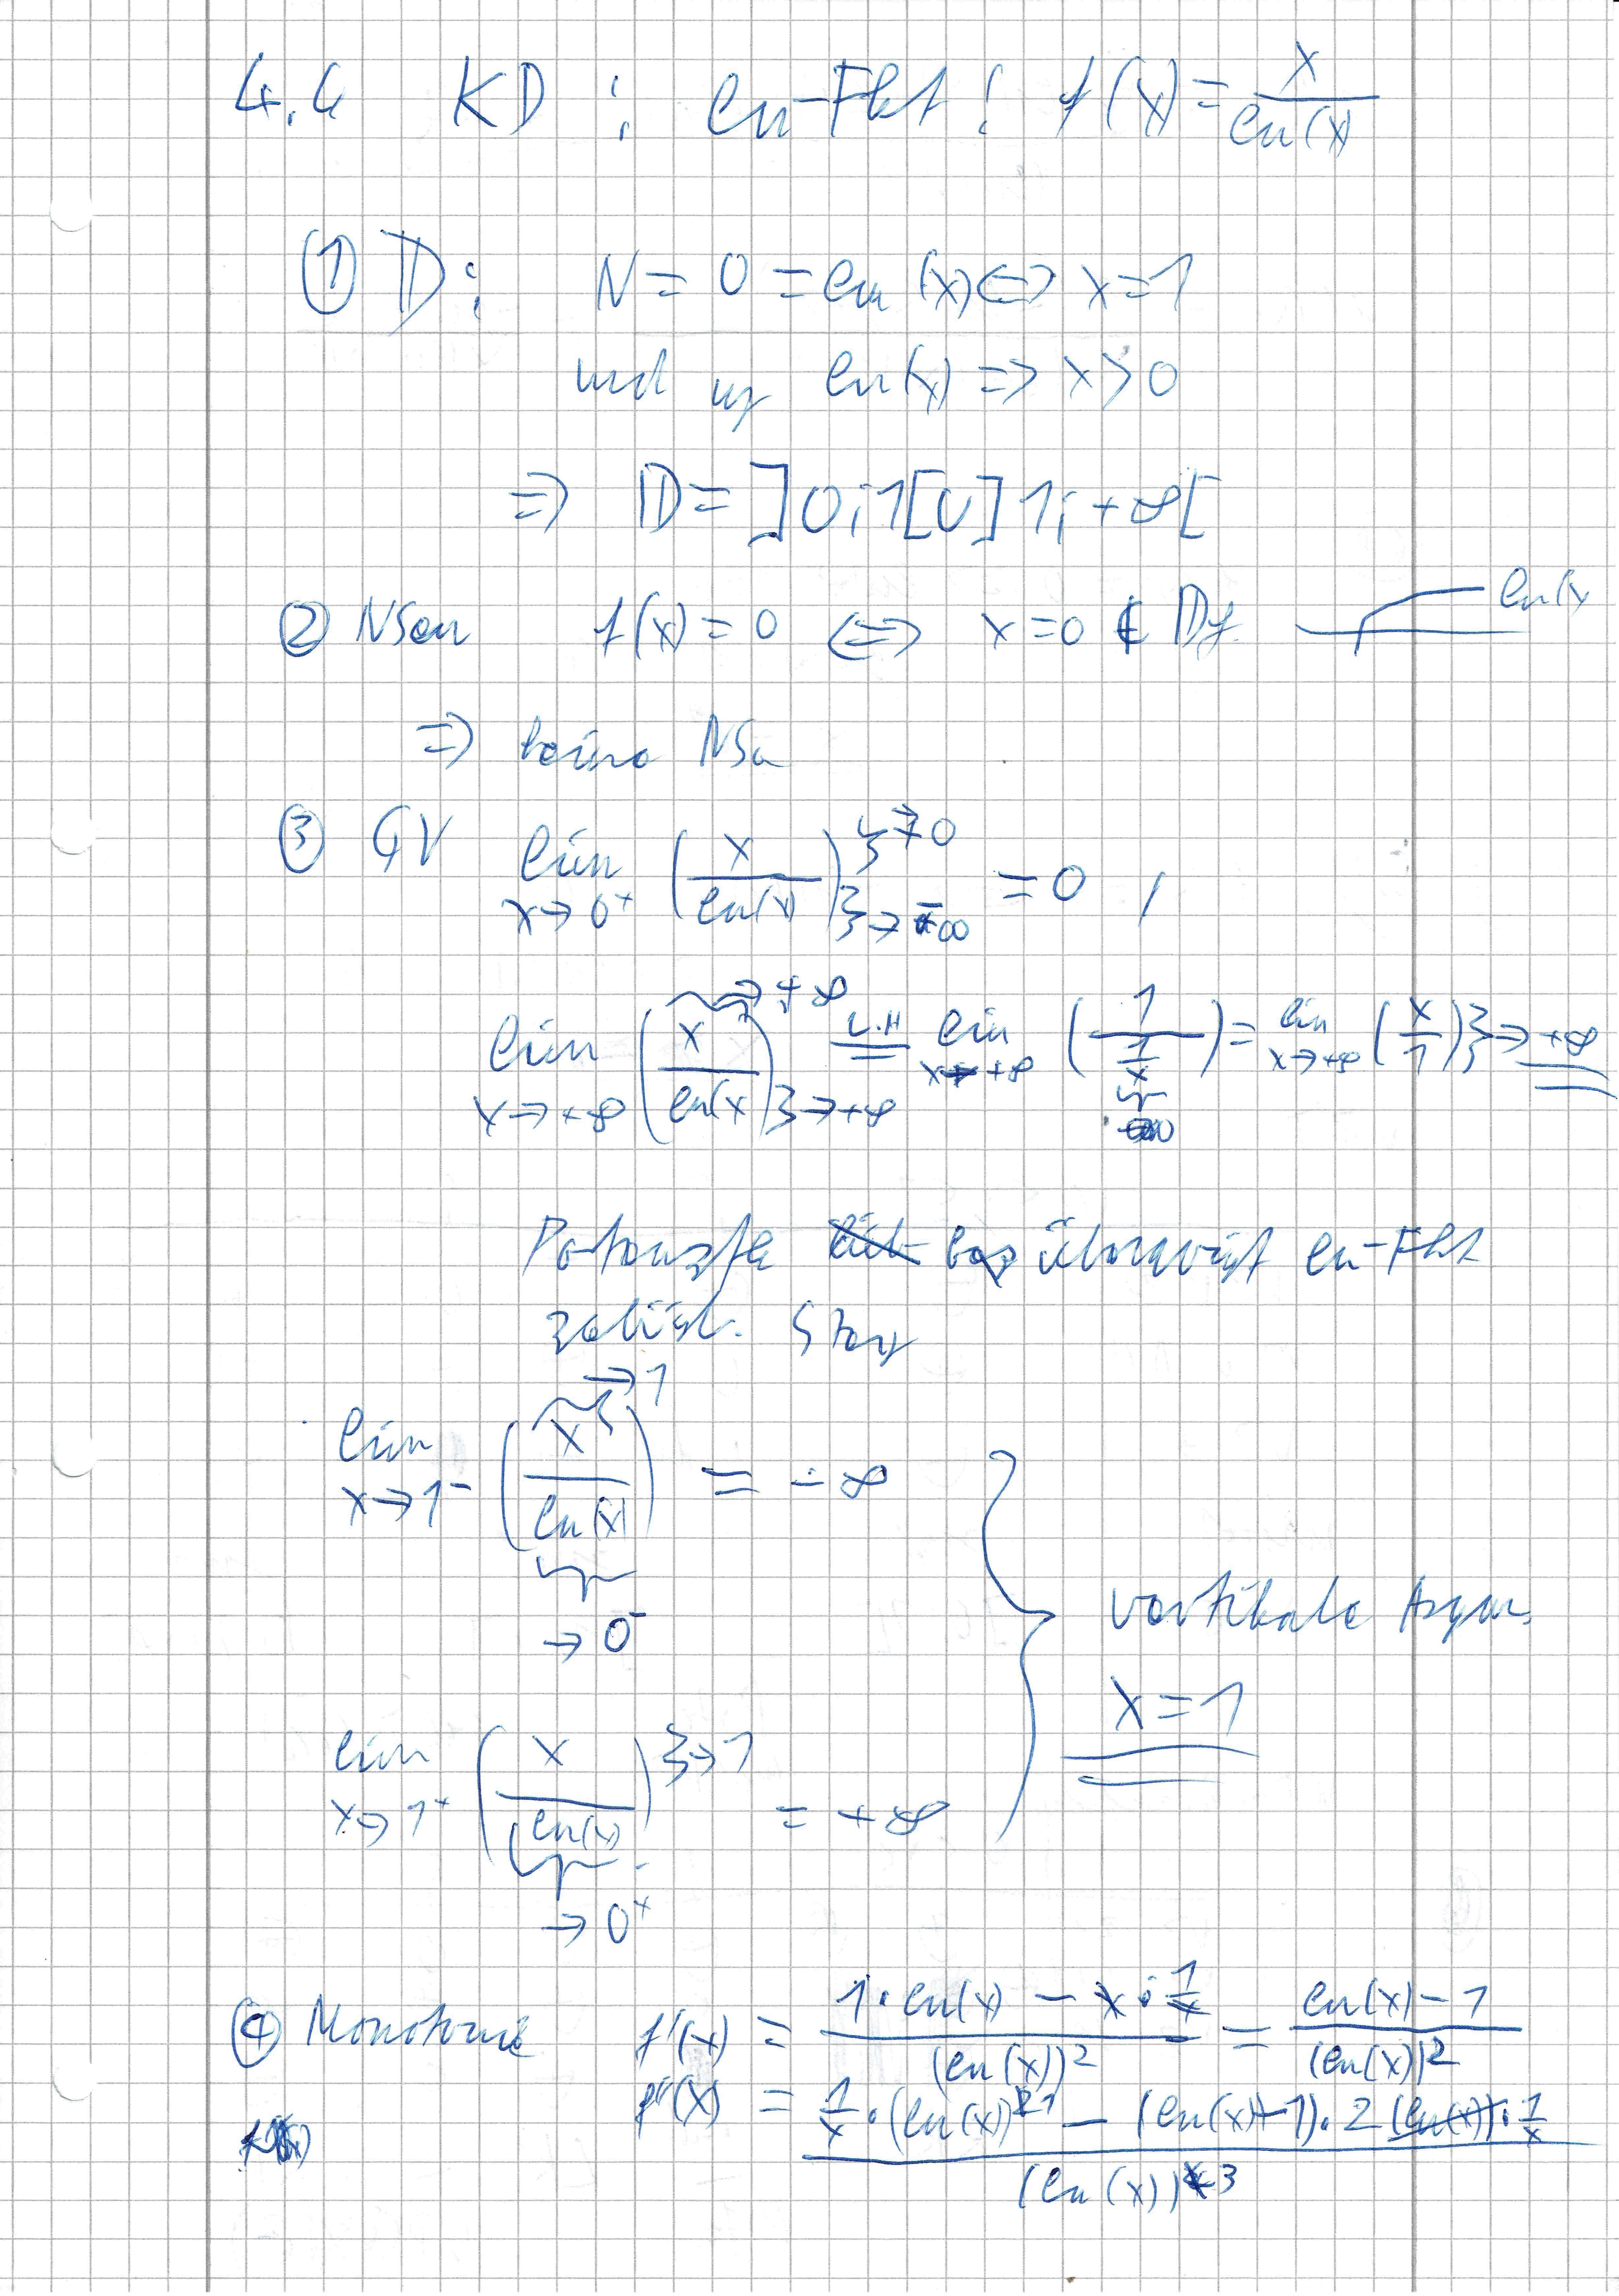 4.4 KD : ln-Fkt ! f(x) = x / ln(x)
① D : N = 0 = ln(x) ⇔ x = 1
und wg ln(x) ⇒ x > 0
⇒ D = ]0;1[ ∪ ]1;+∞[
② NSen f(x) = 0 ⇔ x = 0 ∉ Df ln(x
⇒ keine NSn
③ GV lim x→0⁺ (x / ln(x)) }→0 }→-∞ = 0 ,
lim x→+∞ (x / ln(x) →+∞ }→+∞ =L.H lim x→+∞ (1 / (1/x)) = lim x→+∞ (x/1) }→ +∞
Potenzfkt überwiegt ln-Fkt
lim x→1⁻ (x / ln(x)) →1 →0⁻ = -∞
vertikale Asym.
x = 1
lim x→1⁺ (x / ln(x)) }→1 →0⁺ = +∞
④ Monotonie f'(x) = (1·ln(x) - x·1/x) / (ln(x))² = (ln(x) - 1) / (ln(x))²
f''(x) = (1/x·(ln(x))¹ - (ln(x)-1)·2 (ln(x))·1/x) / (ln(x))³